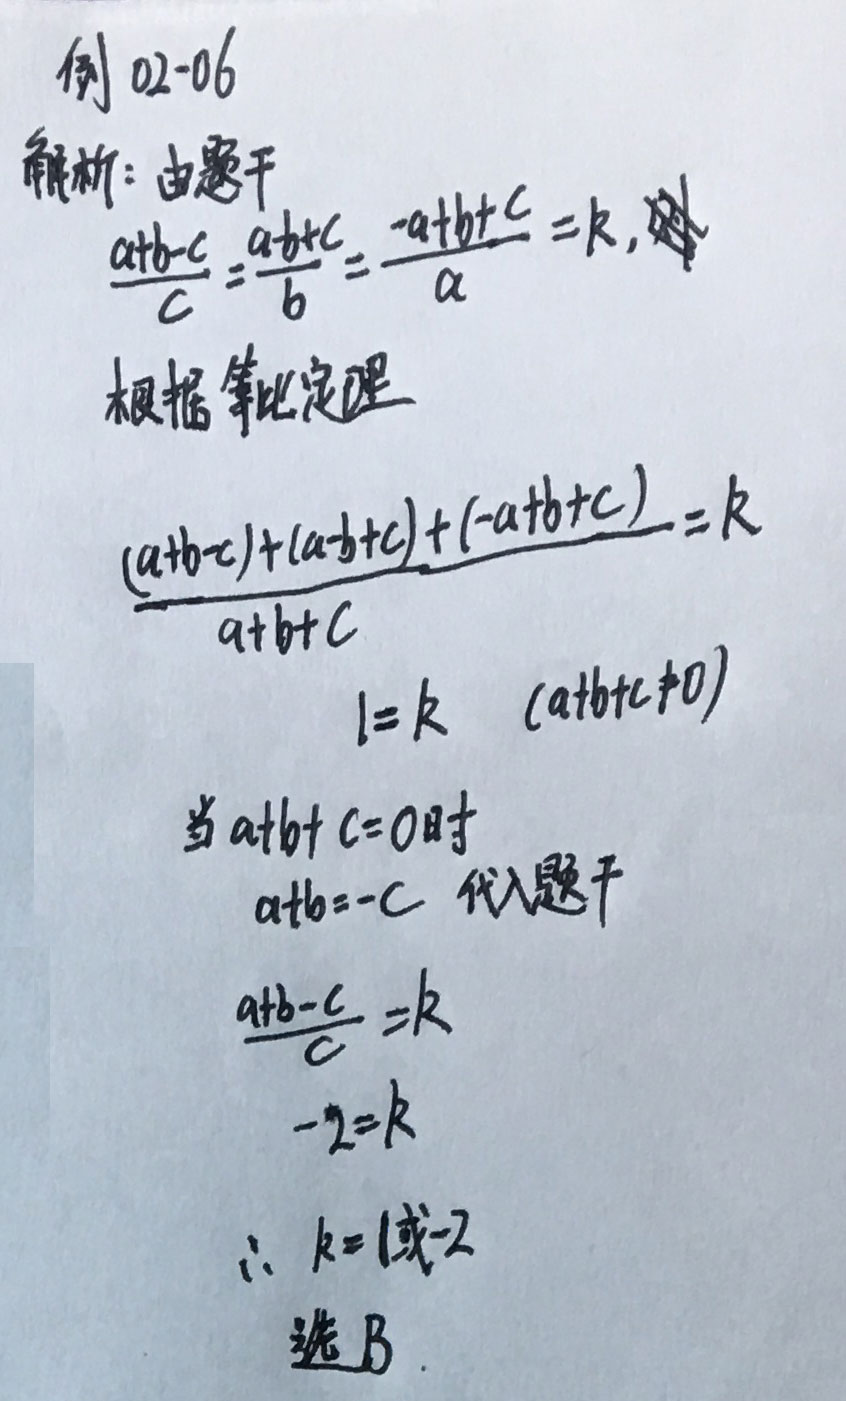 例 02-06
解析：由题干
(a+b-c)/c = (a-b+c)/b = (-a+b+c)/a = k，
根据等比定理
((a+b-c)+(a-b+c)+(-a+b+c))/(a+b+c) = k
1=k (a+b+c≠0)
当 a+b+c=0时
a+b=-c 代入题干
(a+b-c)/c = k
-2=k
∴ k=1或-2
选 B.